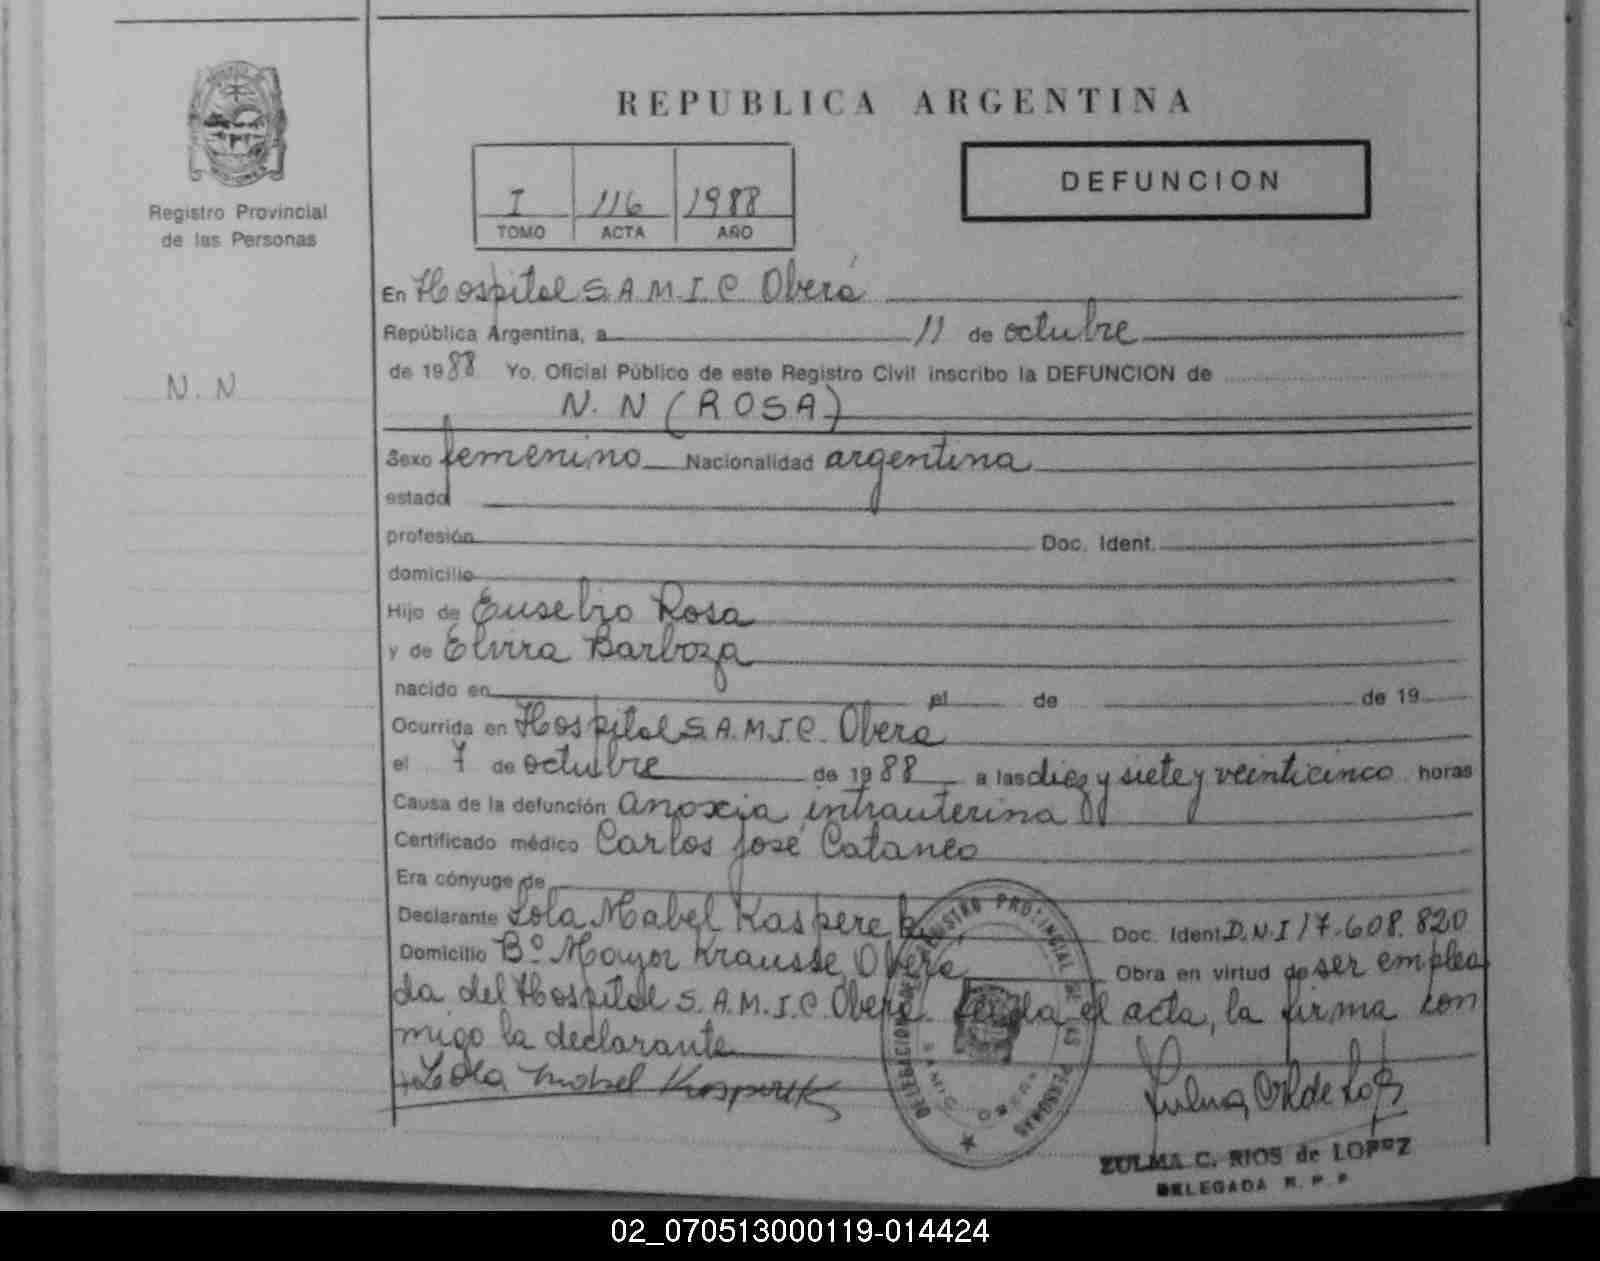 REPUBLICA ARGENTINA
I 116 1988
TOMO ACTA AÑO
DEFUNCION
Registro Provincial
de las Personas
N. N
En Hospital S.A.M.I.C Oberá
República Argentina, a 11 de octubre
de 1988 Yo, Oficial Público de este Registro Civil inscribo la DEFUNCION de
N. N (ROSA)
Sexo femenino Nacionalidad argentina
estado
profesión Doc. Ident.
domicilio
Hijo de Eusebio Rosa
y de Elvira Barboza
nacido en el de de 19
Ocurrida en Hospital S.A.M.I.C. Oberá
el 7 de octubre de 1988 a las diez y siete y veinticinco horas
Causa de la defunción anoxia intrauterina
Certificado médico Carlos José Cataneo
Era cónyuge de
Declarante Lola Mabel Kasperek Doc. Ident D.N.I 17.608.820
Domicilio Bº Mayor Krausse, Oberá Obra en virtud de ser emplea
da del Hospital S.A.M.I.C Oberá. leída el acta, la firma con
migo la declarante
Lola Mabel Kasperek
DELEGACION DEL REGISTRO PROVINCIAL DE LAS PERSONAS
SAMIC OBERA
ZULMA C. RIOS de LOPEZ
DELEGADA R. P. P.
02_070513000119-014424